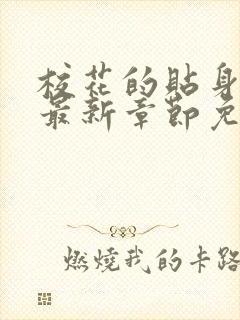 校花的贴身
最新章节免
燃烧我的卡路